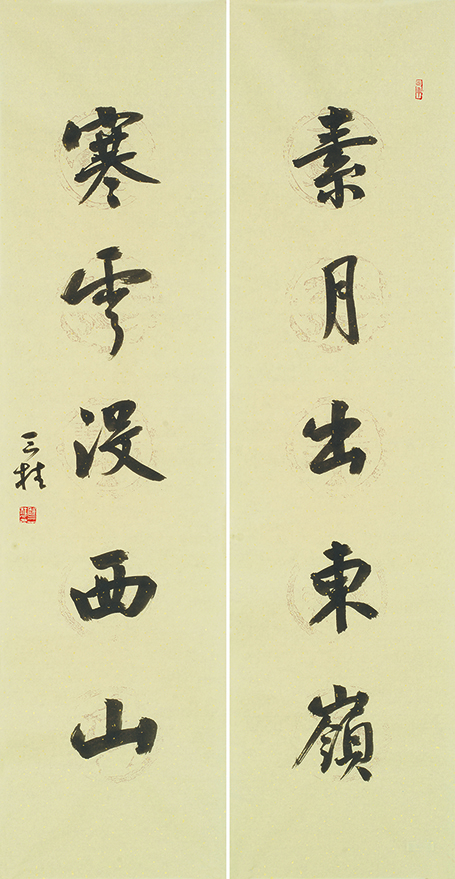 素月出東嶺
寒雲没西山
三桂